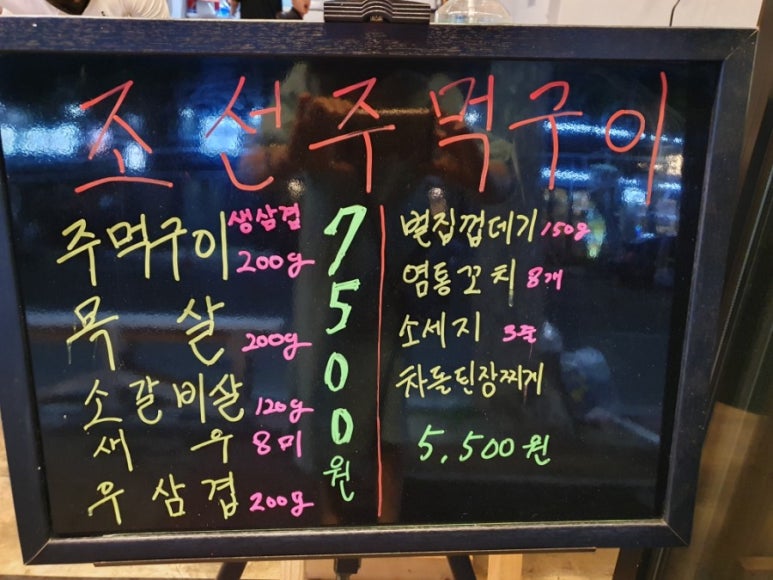 조선주먹구이
주먹구이 생삼겹 200g
목살 200g
소갈비살 120g
새우 8미
우삼겹 200g
7500원
벌집껍데기 150g
염통꼬치 8개
소세지 3줄
차돌된장찌게
5,500원